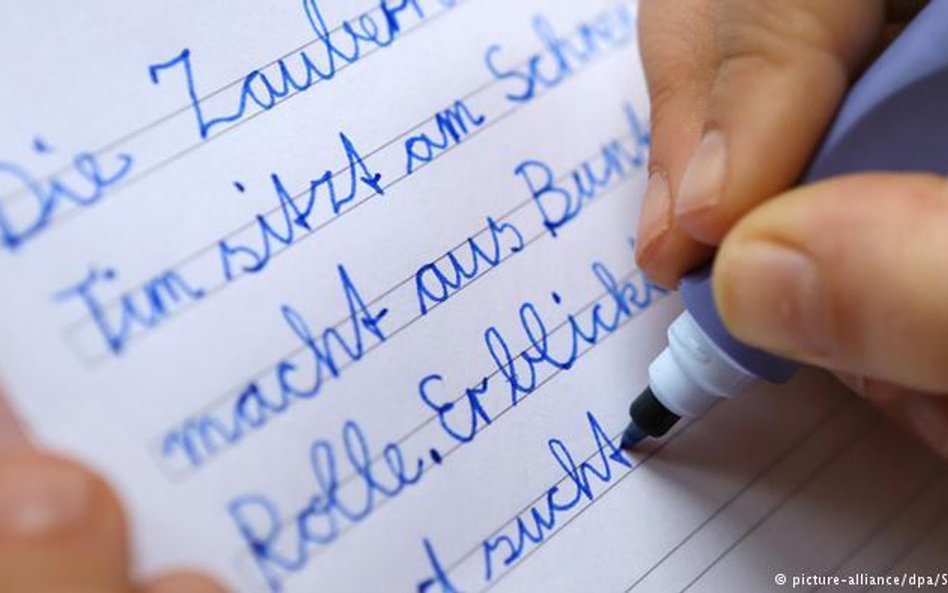 Die Zauberr
Tim sitzt am Schrei
macht aus Bunt
Rolle. Er blickt
d sucht
© picture-alliance/dpa/S